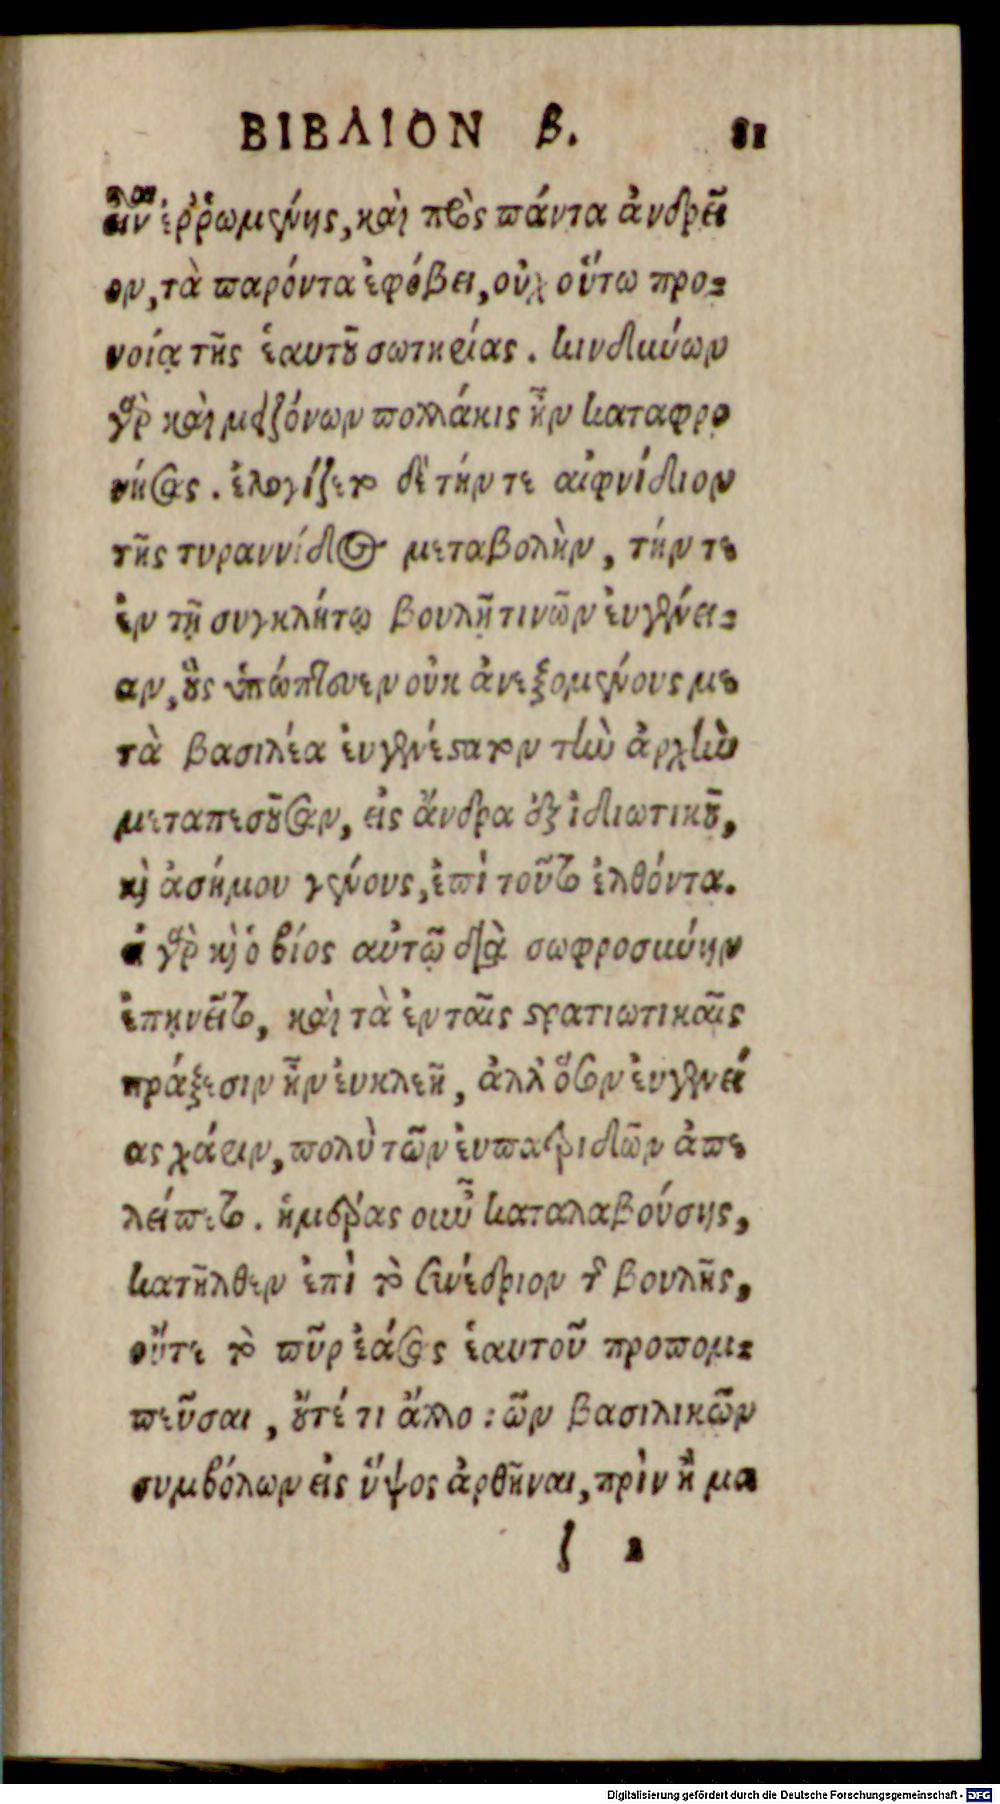 ΒΙΒΛΙΟΝ β. 81
ἐῤῥωμένης, καὶ πρὸς πάντα ἀνδρεῖ
ον, τὰ παρόντα ἐφόβει, οὐχ οὕτω προ-
νοίᾳ τῆς ἑαυτοῦ σωτηρίας. κινδύνων
γὰρ καὶ μειζόνων πολλάκις ἦν καταφρο
νήσας. ἐλογίζετο δὲ τήν τε αἰφνίδιον
τῆς τυραννίδος μεταβολὴν, τήν τε
ἐν τῇ συγκλήτῳ βουλῇ τινῶν ἐυγένει-
αν, οὓς ὑπώπτευεν οὐκ ἀνεξομένους με
τὰ βασιλέα ἐυγενέστατον τὴν ἀρχὴν
μεταπεσοῦσαν, εἰς ἄνδρα ἐξ ἰδιωτικοῦ,
καὶ ἀσήμου γένους, ἐπὶ τοῦτο ἐλθόντα.
εἰ γὰρ καὶ ὁ βίος αὐτῷ διὰ σωφροσύνην
ἐπῃνεῖτο, καὶ τὰ ἐν ταῖς στρατιωτικαῖς
πράξεσιν ἦν ἐυκλεῆ, ἀλλ' ὅσον ἐυγενεί
ας χάριν, πολὺ τῶν ἐυπατριδῶν ἀπε
λείπετο. ἡμέρας οὖν καταλαβούσης,
κατῆλθεν ἐπὶ τὸ συνέδριον τῆς βουλῆς,
οὔτε τὸ πῦρ ἐάσας ἑαυτοῦ προπομ-
πεῦσαι, οὔτέ τι ἄλλο τῶν βασιλικῶν
συμβόλων εἰς ὕψος ἀρθῆναι, πρὶν ἢ μα
l 2
Digitalisierung gefördert durch die Deutsche Forschungsgemeinschaft - DFG